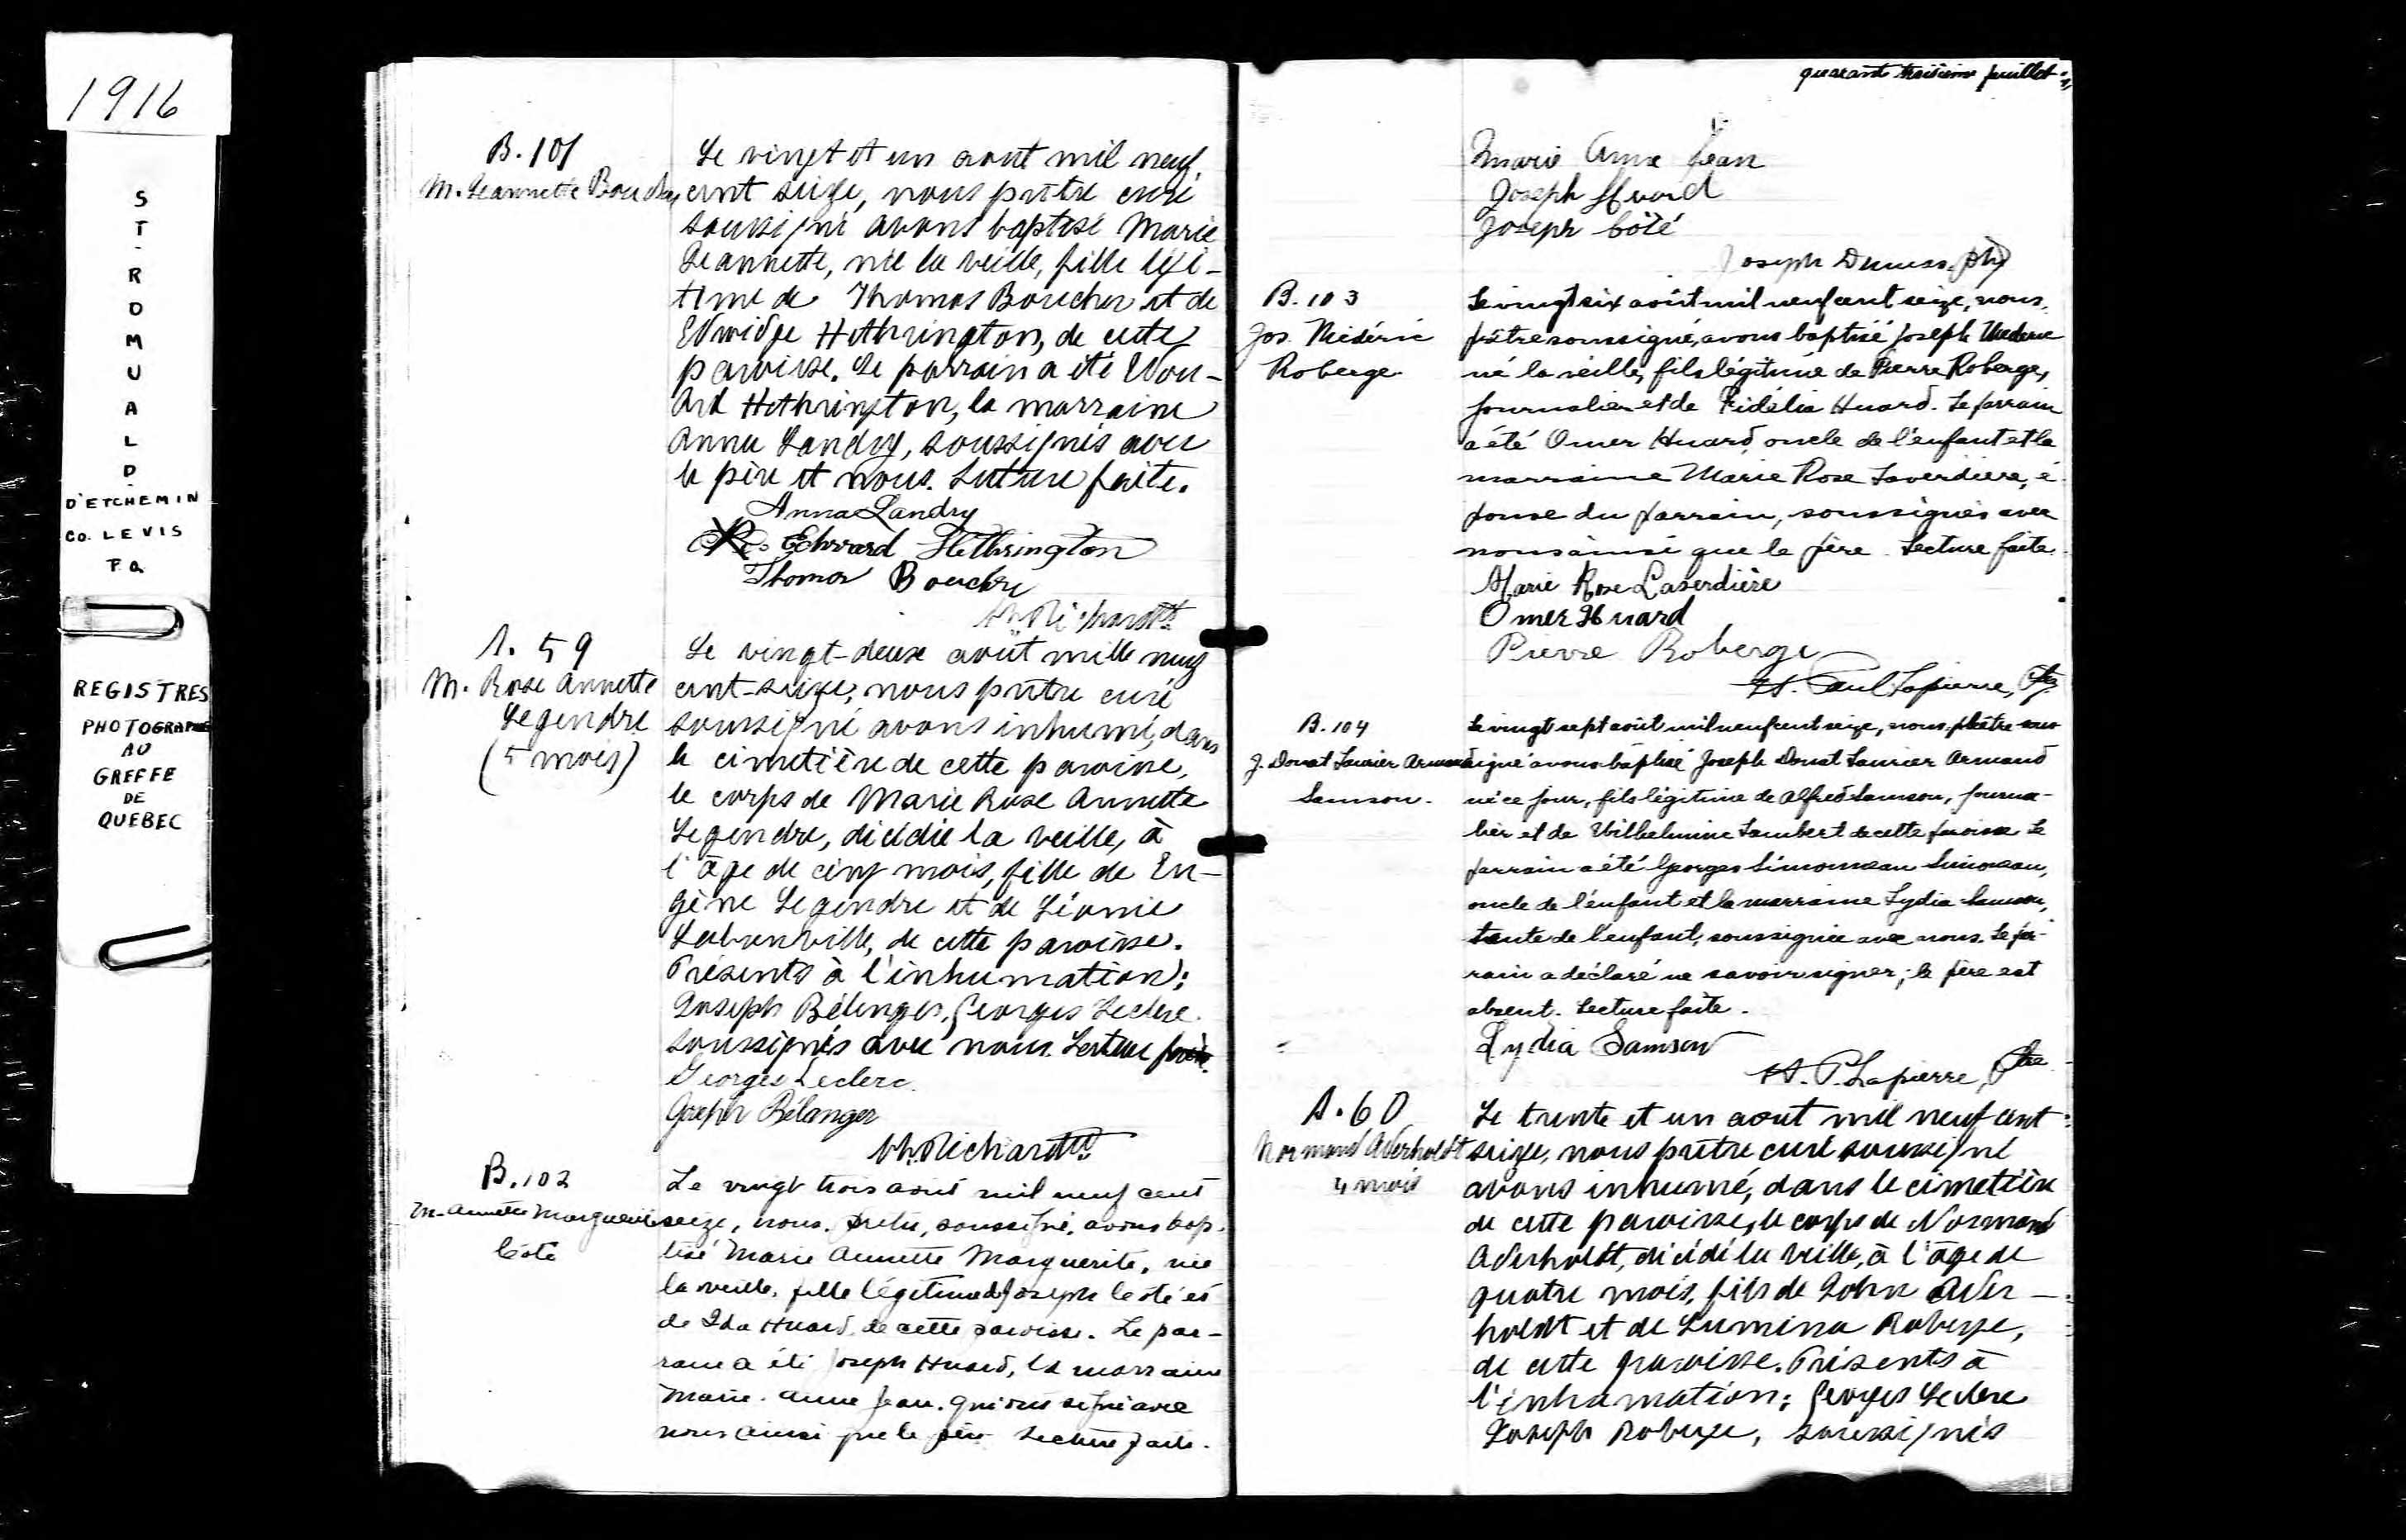 1916
ST-ROMUALD
D'ETCHEMIN
Co. LEVIS
P.Q.
REGISTRES
PHOTOGRAPHIÉ
AU
GREFFE
DE
QUEBEC
B. 101
M. Jeannette Boucher
Le vingt et un aout mil neuf
cent seize, nous prêtre curé
soussigné avons baptisé Marie
Jeannette, née la veille, fille légi-
time de Thomas Boucher et de
Edwidge Hethrington, de cette
paroisse. Le parrain a été Edou-
ard Hethrington, la marraine
Anna Landry, soussignés avec
le père et nous. Lecture faite.
Anna Landry
Edward Hethrington
Thomas Boucher
Richard Ptre
S. 59
M. Rose Annette
Legendre
(5 mois)
Le vingt-deux août mille neuf
cent-seize, nous prêtre curé
soussigné avons inhumé, dans
le cimetière de cette paroisse,
le corps de Marie Rose Annette
Legendre, décédée la veille, à
l'âge de cinq mois, fille de Eu-
gène Legendre et de Léonie
de cette paroisse.
Présents à l'inhumation:
Joseph Bélanger, Georges Leclerc
soussignés avec nous. Lecture faite.
Georges Leclerc
Joseph Bélanger
Richard Ptre
B. 102
M. Annette Marguerite
Côté
Le vingt trois août mil neuf cent
seize, nous, prêtre, soussigné, avons bap-
tisé Marie Annette Marguerite, née
la veille, fille légitime de Joseph Côté et
de Ida Huard, de cette paroisse. Le par-
rain a été Joseph Huard, la marraine
Marie-Anne Jean, qui ont signé avec
nous ainsi que le père Lecture faite.
quarante troisième feuillet
Marie Anna Jean
Joseph Huard
Joseph Côté
Joseph Dumas. ptre
B. 103
Jos. Médéric
Roberge
Le vingt six août mil neuf cent seize, nous,
prêtre soussigné, avons baptisé Joseph Médéric
né la veille, fils légitime de Pierre Roberge,
journalier et de Fidélia Huard. Le parrain
a été Omer Huard, oncle de l'enfant et la
marraine Marie Rose Laverdière, é-
pouse du parrain, soussignés avec
nous ainsi que le père. Lecture faite.
Marie Rose Laverdière
Omer Huard
Pierre Roberge
H. Paul Lapierre, Ptre
B. 104
J. Donat Laurier Armand
Samson.
Le vingt sept août mil neuf cent seize, nous, prêtre sous-
signé avons baptisé Joseph Donat Laurier Armand
né ce jour, fils légitime de Alfred Samson, journa-
lier et de Wilhelmine Lambert de cette paroisse Le
parrain a été Georges Simonneau Simoneau,
oncle de l'enfant et la marraine Lydia Samson,
tante de l'enfant, soussignée avec nous. Le par-
rain a déclaré ne savoir signer; le père est
absent. Lecture faite.
Lydia Samson
H. P. Lapierre, Ptre
S. 60
Normand Aderholdt
4 mois
Le trente et un aout mil neuf cent
seize, nous prêtre curé soussigné
avons inhumé, dans le cimetière
de cette paroisse, le corps de Normand
Aderholdt, décédé la veille, à l'âge de
quatre mois, fils de John Ader-
holdt et de Lumina Roberge,
de cette paroisse. Présents à
l'inhumation: Georges Leclerc
Joseph Roberge, soussignés